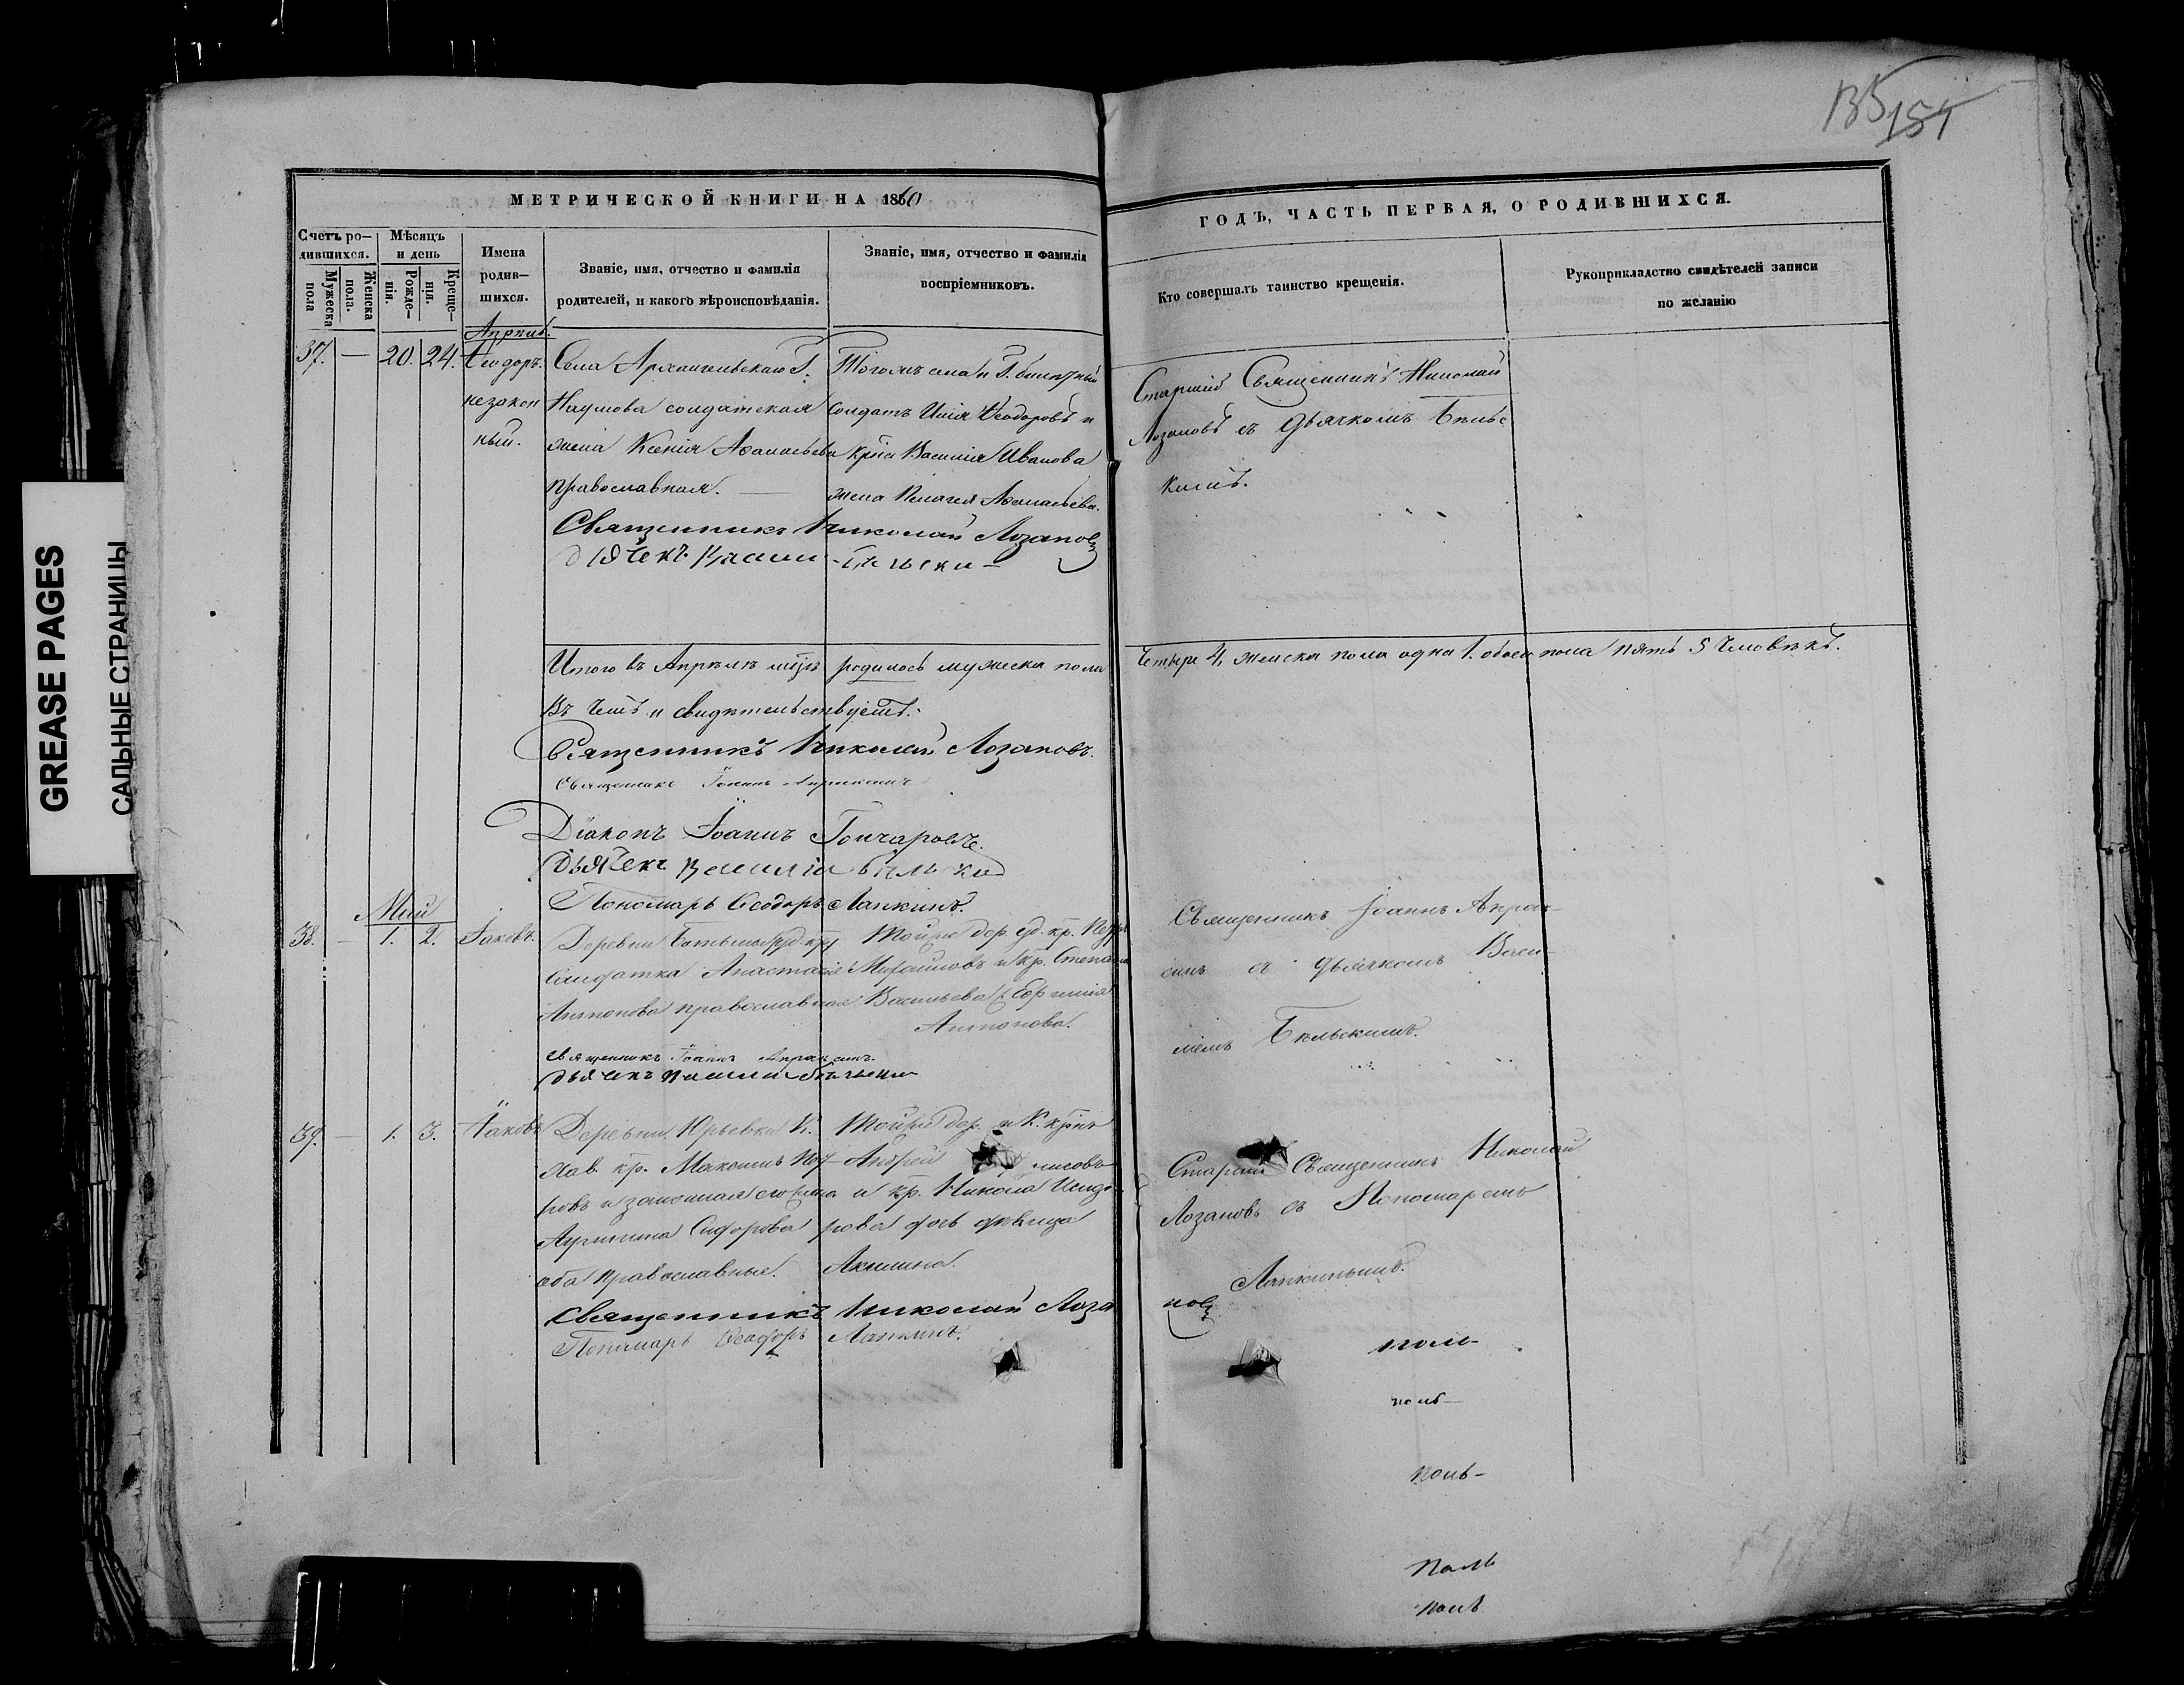 135
151
МЕТРИЧЕСКОЙ КНИГИ НА 1860
ГОДЪ, ЧАСТЬ ПЕРВАЯ, О РОДИВШИХСЯ.
Счетъ ро-
дившихся.
Мужеска
пола
Женска
пола.
Мѣсяцъ
и день
Рожде-
нія.
Креще-
нія.
Имена
родив-
шихся.
Званіе, имя, отчество и фамилія
родителей, и какого вѣроисповѣданія.
Званіе, имя, отчество и фамилія
воспріемниковъ.
Кто совершалъ таинство крещенія.
Рукоприкладство свидѣтелей записи
по желанію
37. — 20. 24. Ѳеодоръ
незакон
ный.
Села Архангельскаго Г.
Наумова солдатская
жена Ксенія Аѳанасьева
православная.
Тогожъ села и Г. билетный
солдатъ Илія Ѳеодоровъ и
крна Василія Иванова
жена Пелагея Аѳанасьева.
Старшій Священникъ Николай
Лозановъ съ дьячкомъ Бѣльс
кимъ.
Священникъ Николай Лозановъ
Дьячекъ
Итого въ Апрѣлѣ мцѣ родилось мужеска пола
четыре 4, женска пола одна 1. обоего пола пять 5 человѣкъ.
Въ чемъ и свидѣтельствуемъ:
Священникъ Николай Лозановъ.
Священникъ Іоаннъ Апраксинъ
Діаконъ Іоаннъ Гончаровъ.
Дьячекъ Василій Бѣльскій
Пономарь Ѳеодоръ Лапкинъ.
Маій
38. — 1. 2. Іаковъ.
Деревни
солдатка Анастасія
Антонова православная
Тойже дер. уд. кр. Петръ
Михайловъ и кр. Степана
Васильева
Антонова.
Священникъ Іоаннъ Апрак-
синъ съ дьячкомъ Васи-
ліемъ Бѣльскимъ.
Священникъ Іоаннъ Апраксинъ.
Дьячекъ Василій Бѣльскій
39. — 1. 3. Іаковъ
Деревни Юрьевки К.
кр. Максимъ
ровъ и законная его жена
Сидорова
оба православные.
Тойже дер. и К. крнъ
Андрей
и кр. Никола Исидо-
рова дочь дѣвица
Акилина.
Старшій Священникъ Николай
Лозановъ съ Пономаремъ
Лапкинымъ.
Священникъ Николай Лоза
новъ
Пономарь Ѳеодоръ Лапкинъ.
GREASE PAGES
САЛЬНЫЕ СТРАНИЦЫ